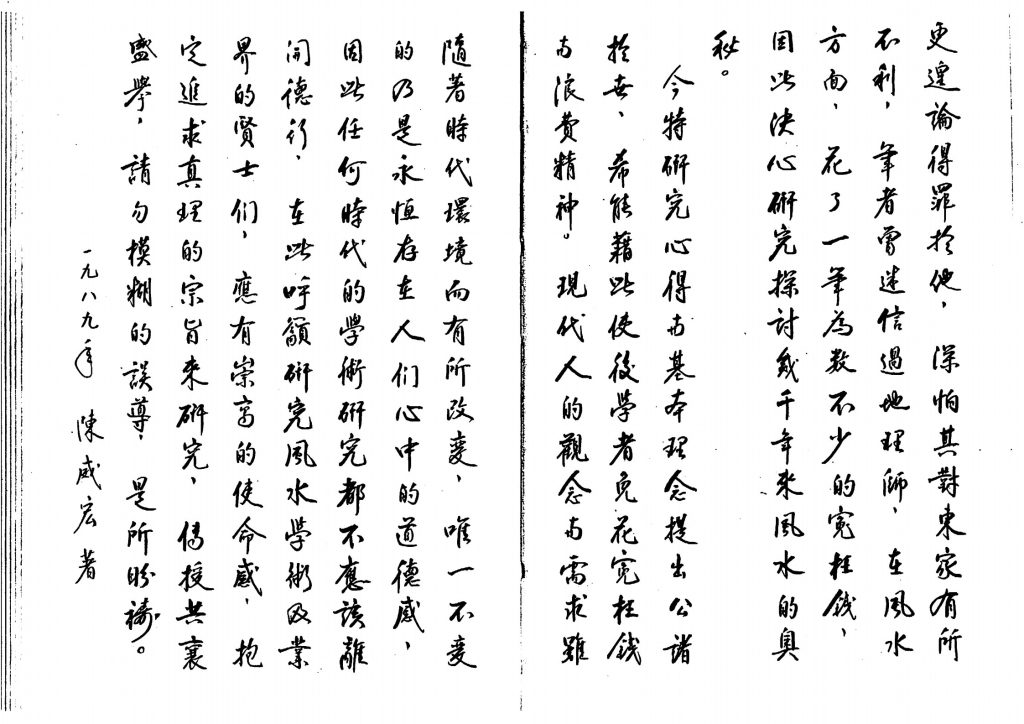 更遑論得罪於他，深怕其對東家有所
不利，筆者曾迷信過地理師，在風水
方面，花了一筆為數不少的冤枉錢，
因此決心研究探討幾千年來風水的奧
秘。
今特研究心得与基本理念提出公諸
於世，希能藉此使後學者免花冤枉錢
与浪費精神。現代人的觀念与需求雖
隨著時代環境而有所改变，唯一不变
的乃是永恒存在人们心中的道德感，
因此任何時代的學術研究都不應該離
開德行，在此呼籲研究風水學術及業
界的賢士们，應有崇高的使命感，抱
定進求真理的宗旨來研究，傳授共襄
盛學，請勿模糊的誤導，是所盼禱。
一九八九年 陳威宏著